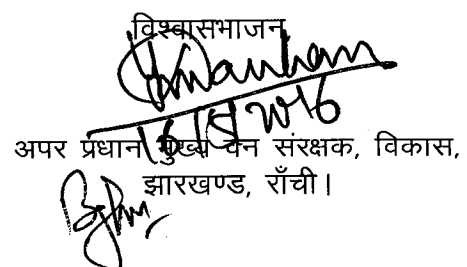 विश्वासभाजन
16/5/2016
अपर प्रधान मुख्य वन संरक्षक, विकास,
झारखण्ड, राँची।